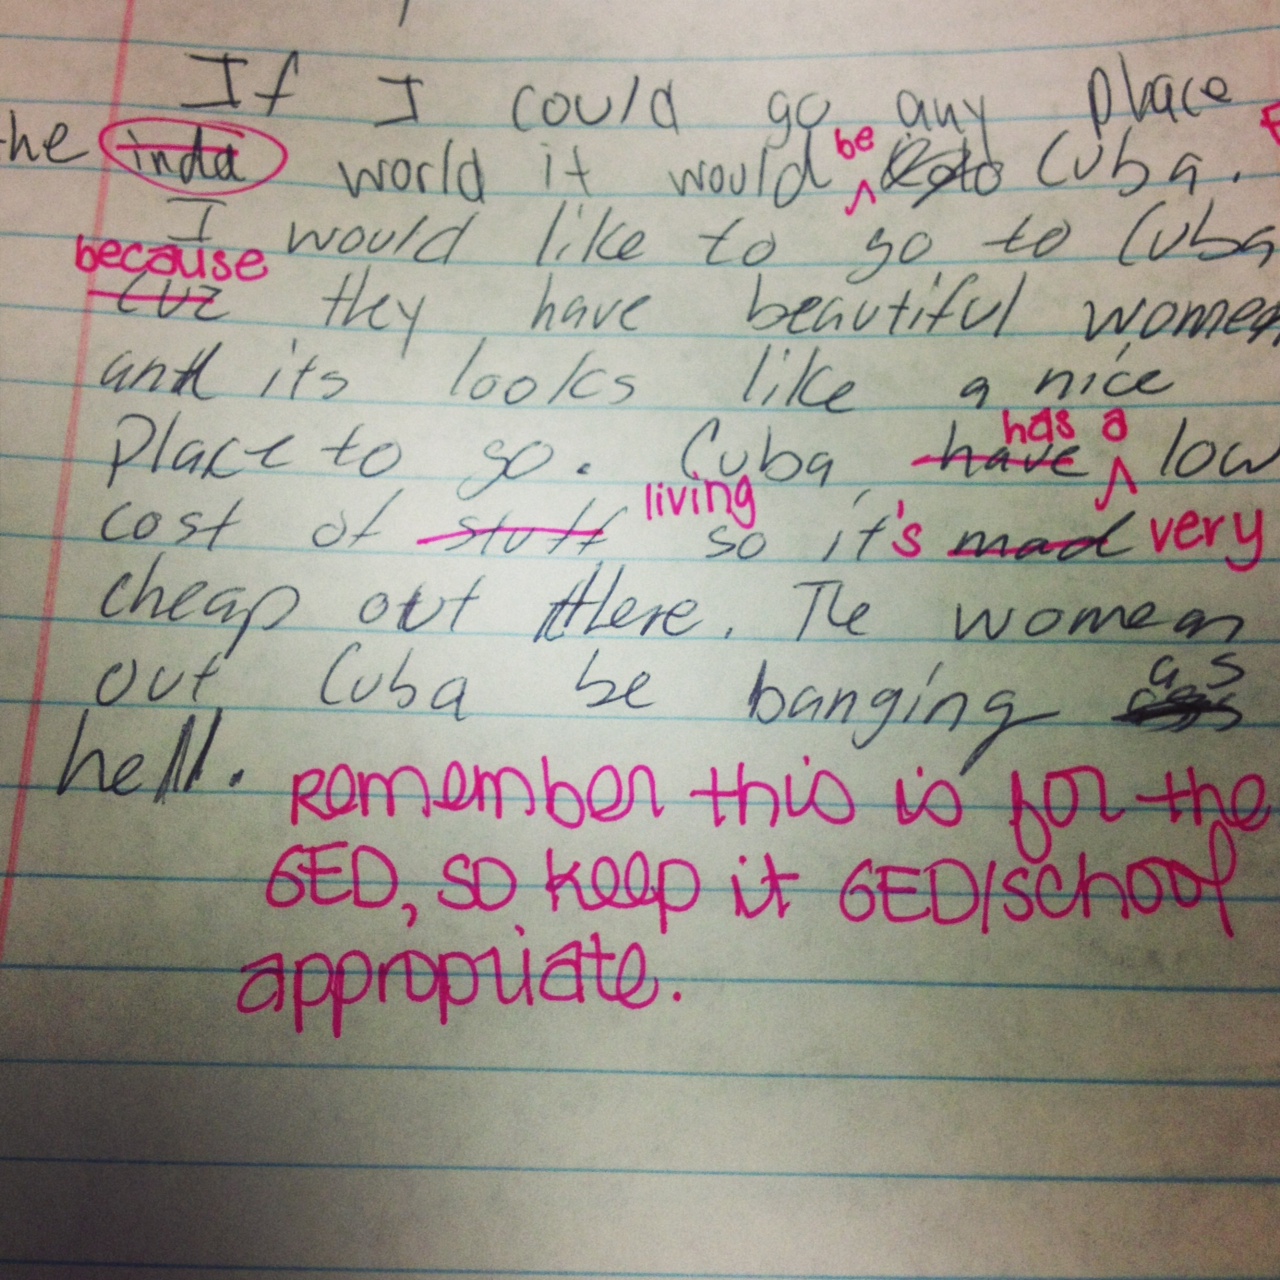 If I could go any place
the inda world it would be Cuba.
I would like to go to Cuba
because
cuz they have beautiful women
and its looks like a nice
has a
Place to go. Cuba, have low
living
cost of stuff so it's mad very
cheap out there. The women
out Cuba be banging as
hell. Remember this is for the
GED, so keep it GED/school
appropriate.